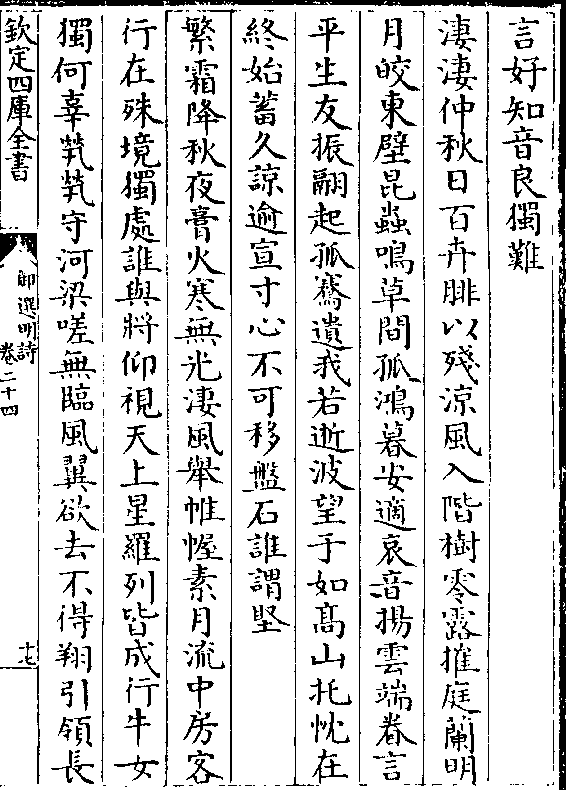 言好知音良獨難
淒淒仲秋日百卉腓以殘涼風入階樹零露摧庭蘭明
月皎東壁昆蟲鳴草間孤鴻暮安適哀音揚雲端眷言
平生友振翮起孤騫遺我若逝波望于如髙山托忱在
終始蓄久諒逾宣寸心不可移盤石誰謂堅
繁霜降秋夜膏火寒無光淒風舉帷幄素月流中房客
行在殊境獨處誰與將仰視天上星羅列皆成行牛女
獨何辜煢煢守河梁嗟無臨風翼欲去不得翔引領長
欽定四庫全書
御選明詩
卷二十四
十七